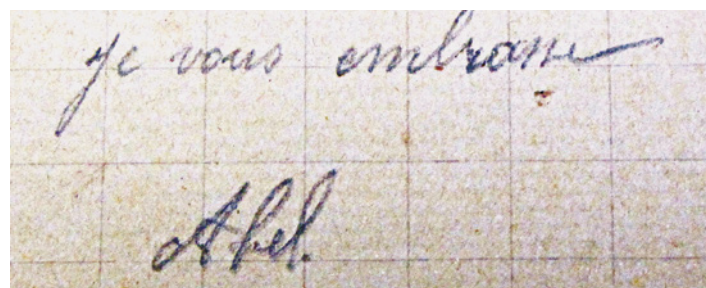 je vous embrasse
Abel.